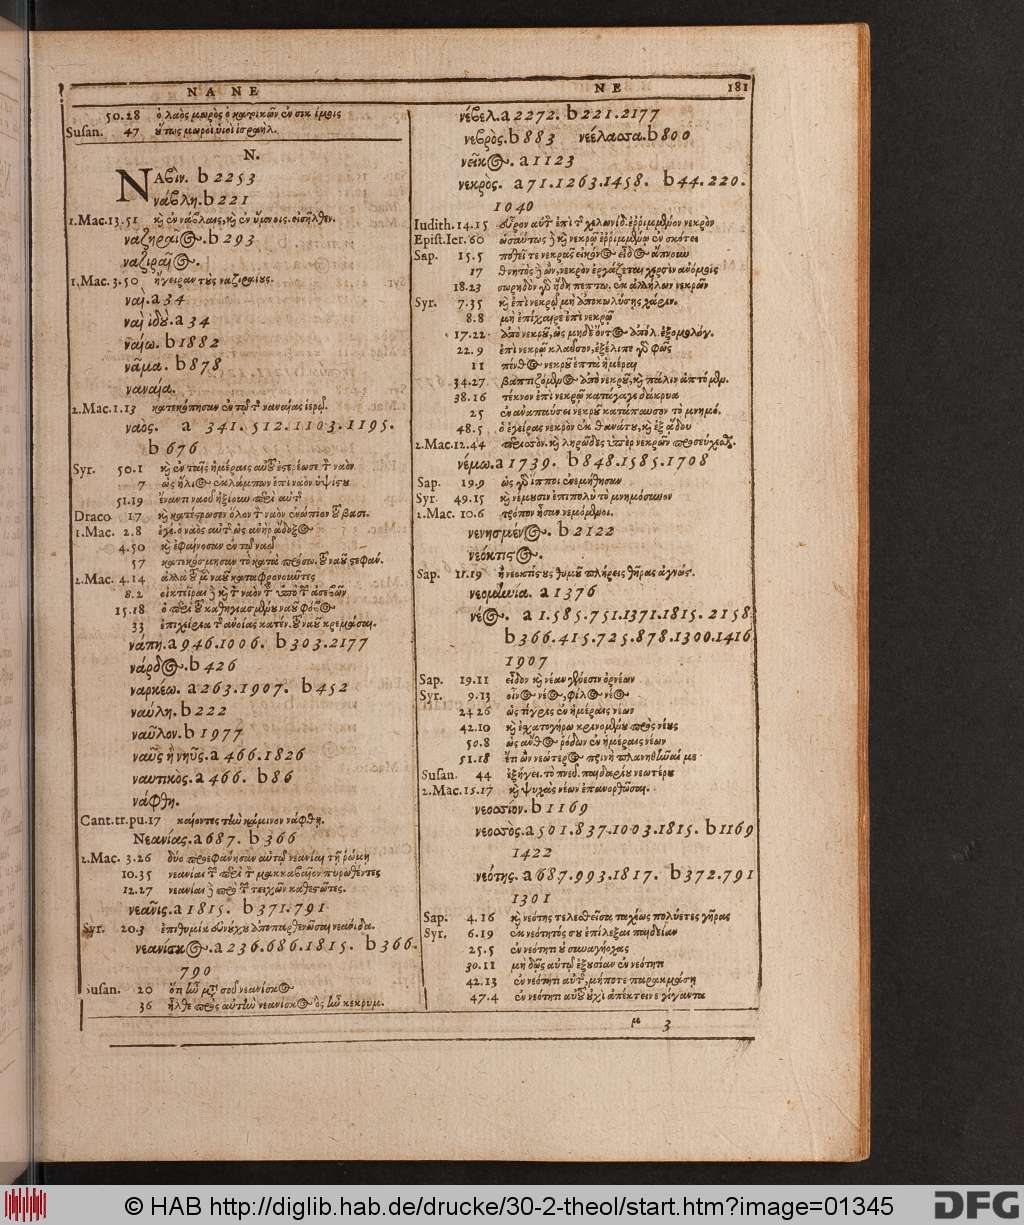 N A N E
N E 181
50.28 ὁ λαὸς μωρὸς ὁ κατοικῶν ἐν σικίμοις
Susan. 47 οὕτως μωροὶ υἱοὶ ἰσραήλ.
N.
ΝΑβὶν. b 2253
νάβλη. b 221
1.Mac.13.51 καὶ ἐν νάβλαις, καὶ ἐν ὕμνοις. εἰσῆλθεν.
ναζηραῖος. b 293
ναζιραῖος.
1.Mac. 3.50 ἤγειραν τοὺς ναζιραίους.
ναὶ. a 34
ναὶ ἰδού. a 34
ναίω. b 1882
νᾶμα. b 878
ναναία.
2.Mac. 1.13 κατεκόπησαν ἐν τῷ τῆς ναναίας ἱερῷ.
ναὸς. a 341. 512. 1103. 1195.
b 676
Syr. 50.1 καὶ ἐν ταῖς ἡμέραις αὐτοῦ ἐστερέωσε τὸν ναὸν
7 ὡς ἥλιος ἐκλάμπων ἐπὶ ναὸν ὑψίστου
51.19 ἔναντι ναοῦ ἠξίουν περὶ αὐτῆς
Draco 17 καὶ κατέστρωσεν ὅλον τὸν ναὸν ἐνώπιον τοῦ βασι.
1.Mac. 2.8 ἐγέ. ὁ ναὸς αὐτῆς ὡς ἀνὴρ ἄδοξος
4.50 καὶ ἐφαίνοσαν ἐν τῷ ναῷ
57 κατεκόσμησαν τὸ κατὰ πρόσω. τοῦ ναοῦ στεφάν.
2.Mac. 4.14 ἀλλὰ τοῦ μὲν ναοῦ καταφρονοῦντες
8.2 οἰκτεῖραι δὲ καὶ τὸν ναὸν τὸν ὑπὸ τῶν ἀσεβῶν
15.18 ὁ περὶ τοῦ καθηγιασμένου ναοῦ φόβος
33 ἐπιχείρια τῆς ἀνοίας κατέν. τοῦ ναοῦ κρεμάσαι.
νάπη. a 946.1006. b 303.2177
νάρδος. b 426
ναρκέω. a 263.1907. b 452
ναύλη. b 222
ναῦλον. b 1977
ναῦς ἢ νηῦς. a 466.1826
ναυτικὸς. a 466. b 86
νάφθη.
Cant.tr.pu.17 καίοντες τὴν κάμινον νάφθῃ.
Νεανίας. a 687. b 366
2.Mac. 3.26 δύο προεφάνησαν αὐτῷ νεανίαι τῇ ῥώμῃ
10.35 νεανίαι τῶν περὶ τὸν μακκαβαῖον πυρωθέντες
12.27 νεανίαι δὲ πρὸ τῶν τειχῶν καθεστῶτες.
νεᾶνις. a 1815. b 371.791
Syr. 20.3 ἐπιθυμία εὐνούχου ἀποπαρθενῶσαι νεάνιδα.
νεανίσκος. a 236.686.1815. b 366.
790
Susan. 20 ὅτι ἦν μετὰ σοῦ νεανίσκος
36 ἦλθε πρὸς αὐτὴν νεανίσκος ὃς ἦν κεκρυμ.
νέβελ. a 2272. b 221.2177
νεβρὸς. b 883 νεέλασσα. b 800
νεῖκος. a 1123
νεκρὸς. a 71.1263.1458. b 44.220.
1040
Iudith.14.15 εὗρον αὐτὸν ἐπὶ τῆς χελωνίδ. ἐρριμμένον νεκρὸν
Epist.Ier. 60 ὡσαύτως δὲ καὶ νεκρῷ ἐρριμμένῳ ἐν σκότει
Sap. 15.5 ποθεῖ τε νεκρᾶς εἰκόνος εἶδος ἄπνουν
17 θνητὸς δὲ ὢν, νεκρὸν ἐργάζεται χερσὶν ἀνόμοις
18.23 σωρηδὸν γὰρ ἤδη πεπτω. ἐπ' ἀλλήλων νεκρῶν
Syr. 7.35 καὶ ἐπὶ νεκρῷ μὴ ἀποκωλύσῃς χάριν.
8.8 μὴ ἐπίχαιρε ἐπὶ νεκρῷ
17.22 ἀπὸ νεκροῦ, ὡς μηδὲ ὄντος ἀπόλ. ἐξομολόγ.
22.9 ἐπὶ νεκρῷ κλαῦσον, ἐξέλιπε γὰρ φῶς
11 πένθος νεκροῦ ἑπτὰ ἡμέραι
34.27 βαπτιζόμενος ἀπὸ νεκροῦ, καὶ πάλιν ἁπτόμεν.
38.16 τέκνον ἐπὶ νεκρῷ κατάγαγε δάκρυα
25 ἐν ἀναπαύσει νεκροῦ κατάπαυσον τὸ μνημό.
48.5 ὁ ἐγείρας νεκρὸν ἐκ θανάτου, καὶ ἐξ ᾅδου
2.Mac.12.44 περισσὸν. καὶ ληρῶδες ὑπὲρ νεκρῶν προσεύχεσθ.
νέμω. a 1739. b 848.1585.1708
Sap. 19.9 ὡς γὰρ ἵπποι ἐνεμήθησαν
Syr. 49.15 καὶ νέμουσιν ἐπιπολὺ τὸ μνημόσυνον
2.Mac. 10.6 τρόπον ἦσαν νεμόμενοι.
νενησμένος. b 2122
νεόκτιστος.
Sap. 11.19 ἢ νεοκτίστους θυμοῦ πλήρεις θῆρας ἀγνώς.
νεομηνία. a 1376
νέος. a 1.585.751.1371.1815. 2158
b 366.415.725.878.1300.1416.
1907
Sap. 19.11 εἶδον καὶ νέαν γένεσιν ὀρνέων
Syr. 9.13 οἶνος νέος, φίλος νέος
24 26 ὡς τίγρις ἐν ἡμέραις νέων
42.10 καὶ ἐσχατογήρω κρινομένου πρὸς νέους
50.8 ὡς ἄνθος ῥόδων ἐν ἡμέραις νέων
51.18 ἔτι ὢν νεώτερος πρινὴ πλανηθῆναί με
Susan. 44 ἐξήγει. τὸ πνεῦ. παιδαρίου νεωτέρου
2.Mac. 15.17 καὶ ψυχὰς νέων ἐπανορθῶσαι.
νεοσσίον. b 1169
νεοσσὸς. a 501.837.1003.1815. b 1169
1422
νεότης. a 687.993.1817. b 372.791
1301
Sap. 4.16 καὶ νεότης τελεσθεῖσα ταχέως πολυετὲς γῆρας
Syr. 6.19 ἐκ νεότητός σου ἐπίλεξαι παιδείαν
25.5 ἐν νεότητι οὐ συναγήοχας
30.11 μὴ δῷς αὐτῷ ἐξουσίαν ἐν νεότητι
42.13 ἐν νεότητι αὐτῆς, μήποτε παρακμάσῃ
47.4 ἐν νεότητι αὐτοῦ οὐχὶ ἀπέκτεινε γίγαντα
μ 3
© HAB http://diglib.hab.de/drucke/30-2-theol/start.htm?image=01345
DFG